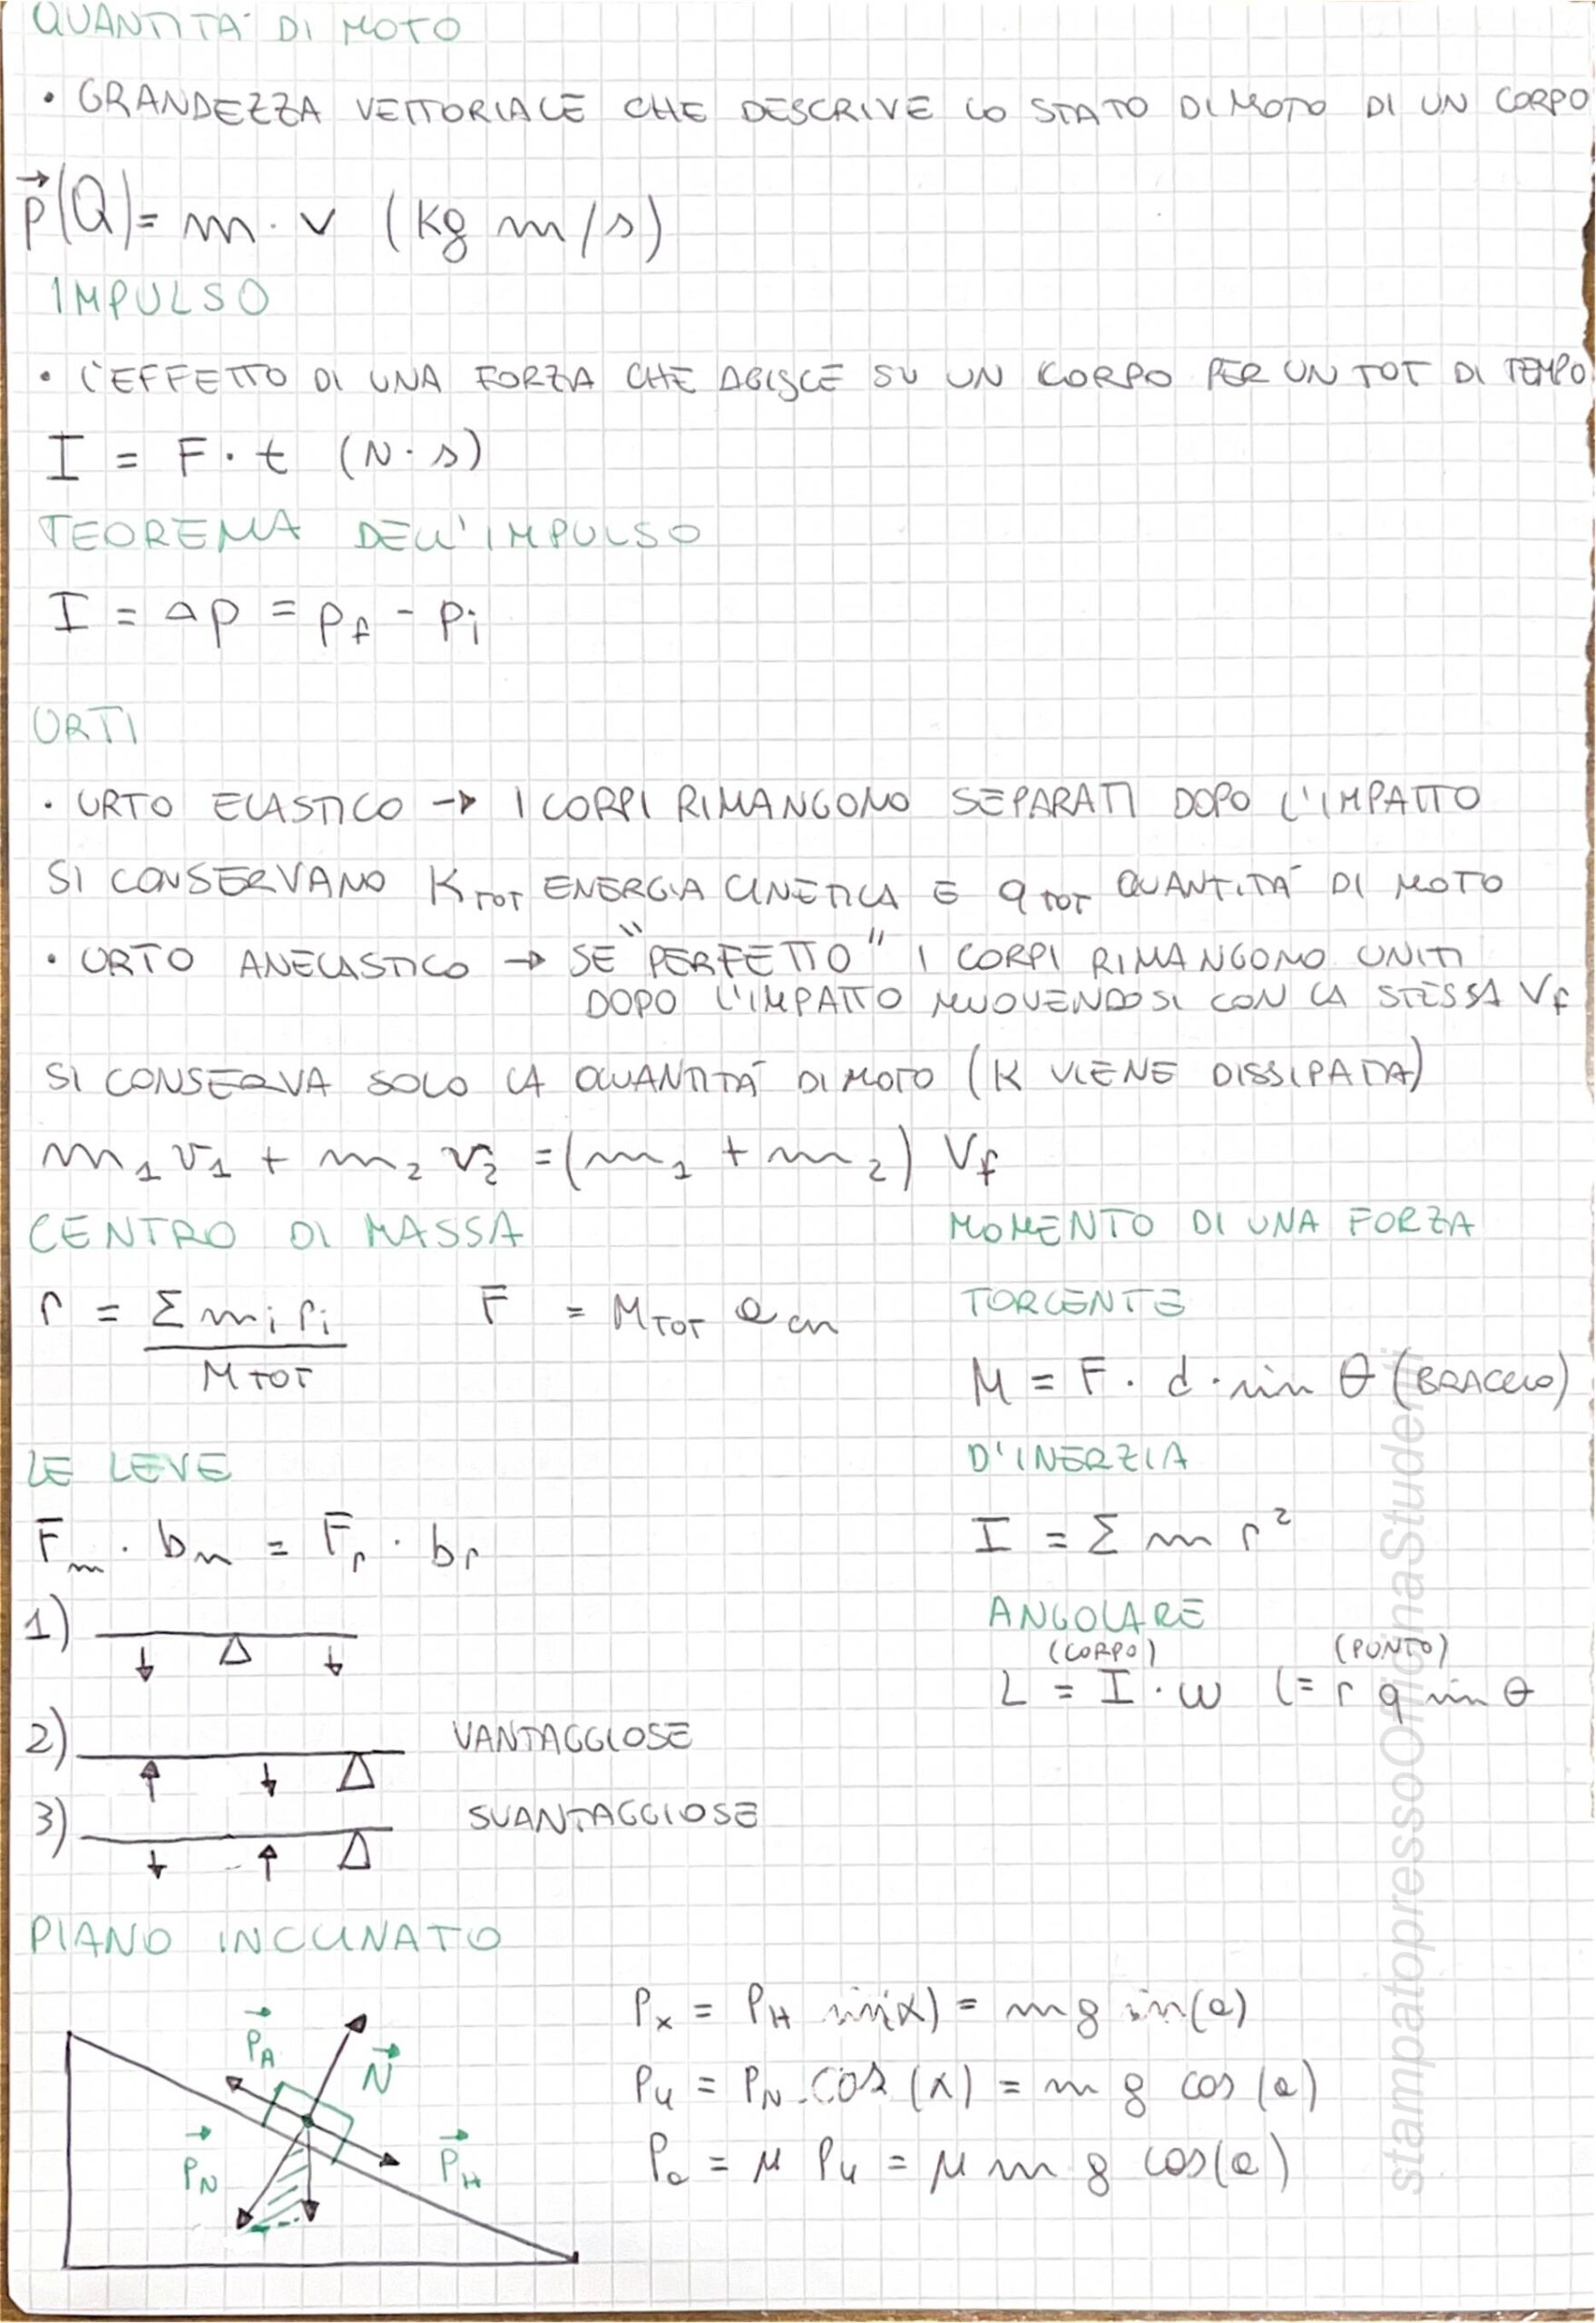 QUANTITÀ DI MOTO
• GRANDEZZA VETTORIALE CHE DESCRIVE LO STATO DI MOTO DI UN CORPO
p⃗(Q) = m · v (kg m/s)
IMPULSO
• L'EFFETTO DI UNA FORZA CHE AGISCE SU UN CORPO PER UN TOT DI TEMPO
I = F · t (N · s)
TEOREMA DELL'IMPULSO
I = Δp = pf - pi
URTI
• URTO ELASTICO → I CORPI RIMANGONO SEPARATI DOPO L'IMPATTO
SI CONSERVANO KTOT ENERGIA CINETICA E qTOT QUANTITÀ DI MOTO
• URTO ANELASTICO → SE "PERFETTO" I CORPI RIMANGONO UNITI
DOPO L'IMPATTO MUOVENDOSI CON LA STESSA Vf
SI CONSERVA SOLO LA QUANTITÀ DI MOTO (K VIENE DISSIPATA)
m1 v1 + m2 v2 = (m1 + m2) Vf
CENTRO DI MASSA
r = Σ mi ri / MTOT F = MTOT acm
MOMENTO DI UNA FORZA
TORCENTE
M = F · d · sin θ (BRACCIO)
LE LEVE
Fm · bm = Fr · br
D'INERZIA
I = Σ m r²
1)
ANGOLARE
(CORPO) (PUNTO)
L = I · ω l = r q sin θ
2) VANTAGGIOSE
3) SVANTAGGIOSE
PIANO INCLINATO
P⃗A
N⃗
P⃗N
P⃗H
Px = PH sin(α) = m g sin(a)
Py = PN · cos(α) = m g cos(a)
Pa = μ Py = μ m g cos(a)
stampatopressoOfficinaStudenti